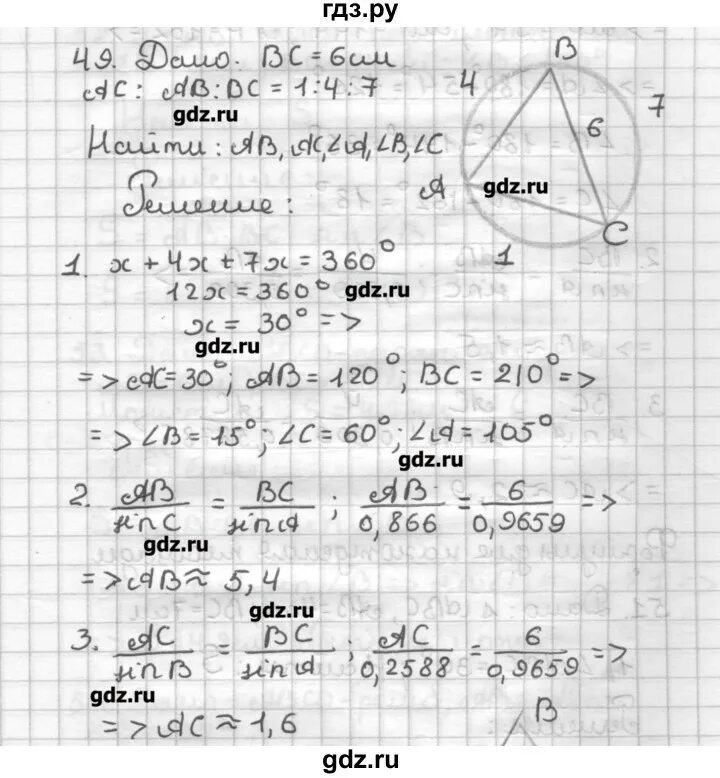 гдз.ру
49. Дано: BC = 6см
AC : AB : BC = 1 : 4 : 7
gdz.ru
Найти: AB, AC, ∠A, ∠B, ∠C
Решение:
B
4
7
6
A
gdz.ru
C
1
1. x + 4x + 7x = 360°
12x = 360°
gdz.ru
x = 30° =>
gdz.ru
=> AC = 30°; AB = 120°; BC = 210° =>
=> ∠B = 15°; ∠C = 60°; ∠A = 105°
gdz.ru
2. AB/sin C = BC/sin A ; AB/0,866 = 6/0,9659 =>
gdz.ru
=> AB ≈ 5,4
gdz.ru
3. AC/sin B = BC/sin A ; AC/0,2588 = 6/0,9659 =>
gdz.ru
gdz.ru
=> AC ≈ 1,6
B
gdz.ru